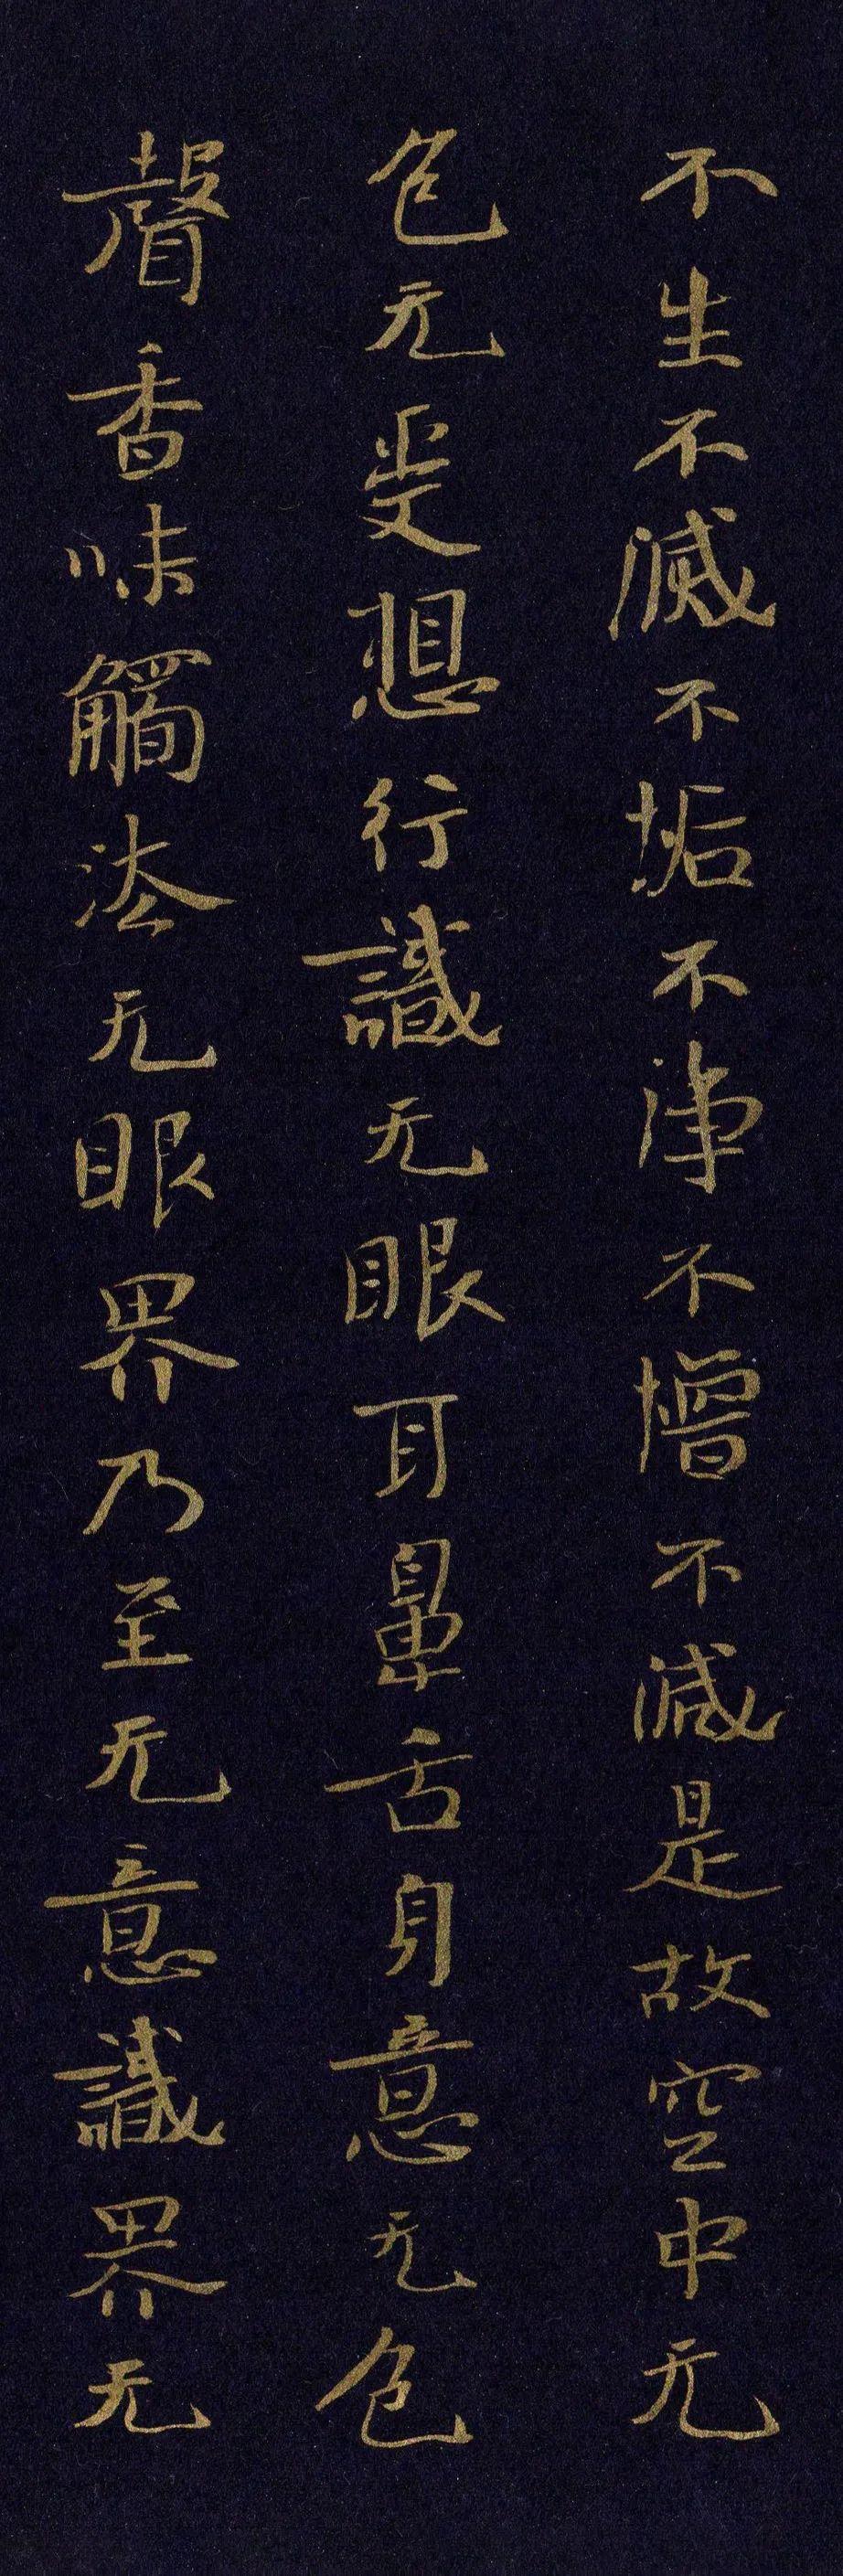 不生不滅不垢不净不增不減是故空中无
色无受想行識无眼耳鼻舌身意无色
聲香味觸法无眼界乃至无意識界无